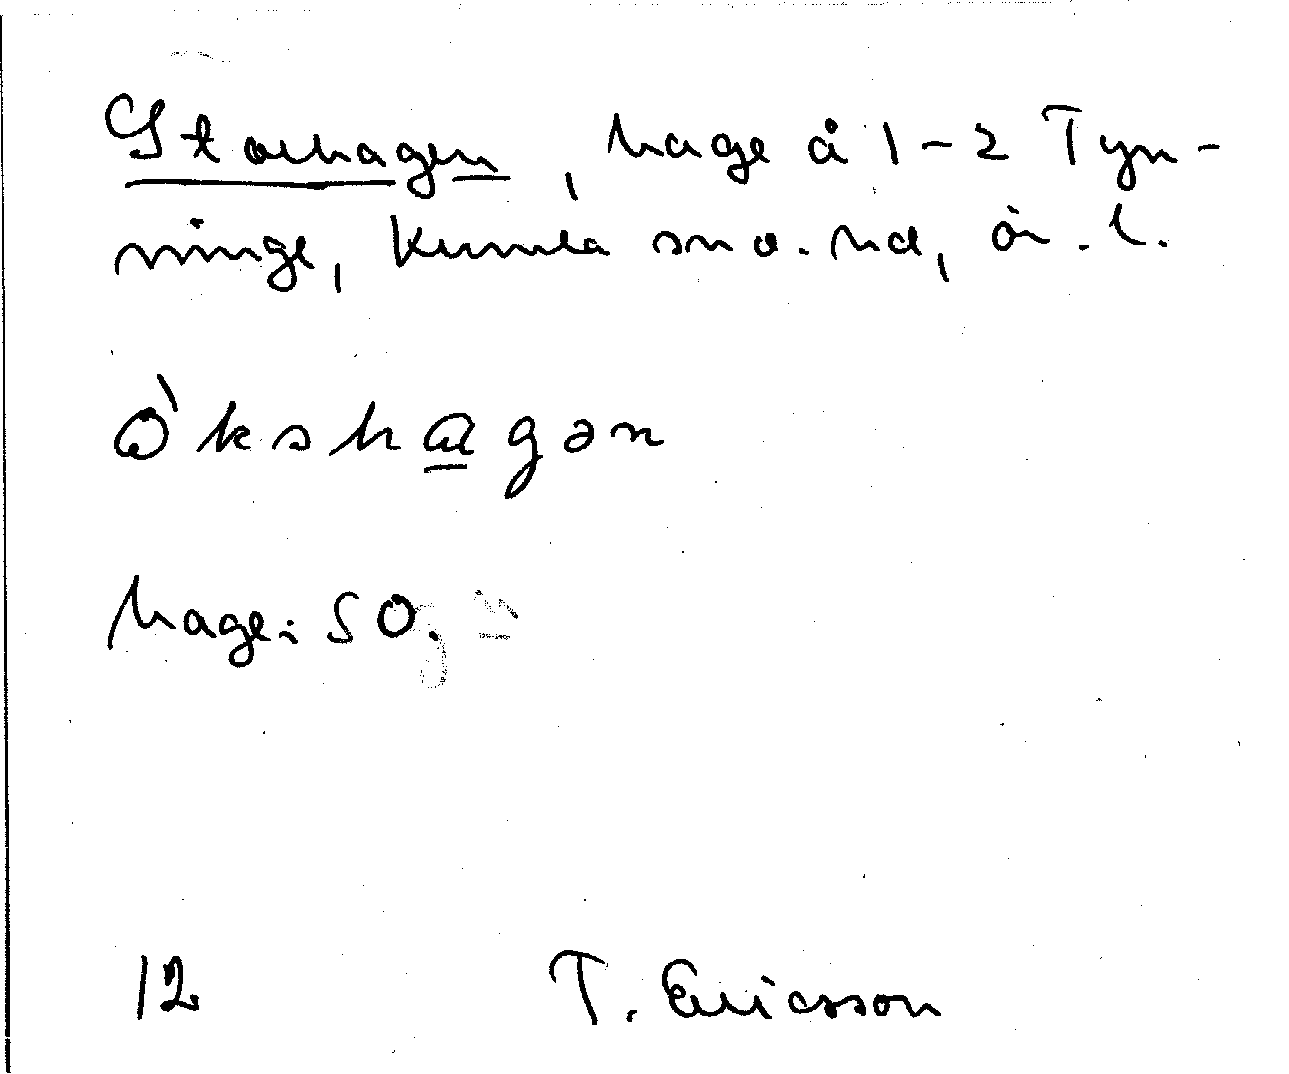 Storhagen, hage å 1-2 Tyn-
ninge, Kumla sn o. hd, ör. l.
Ò́kshagən
hage i SO.
12 T. Ericsson